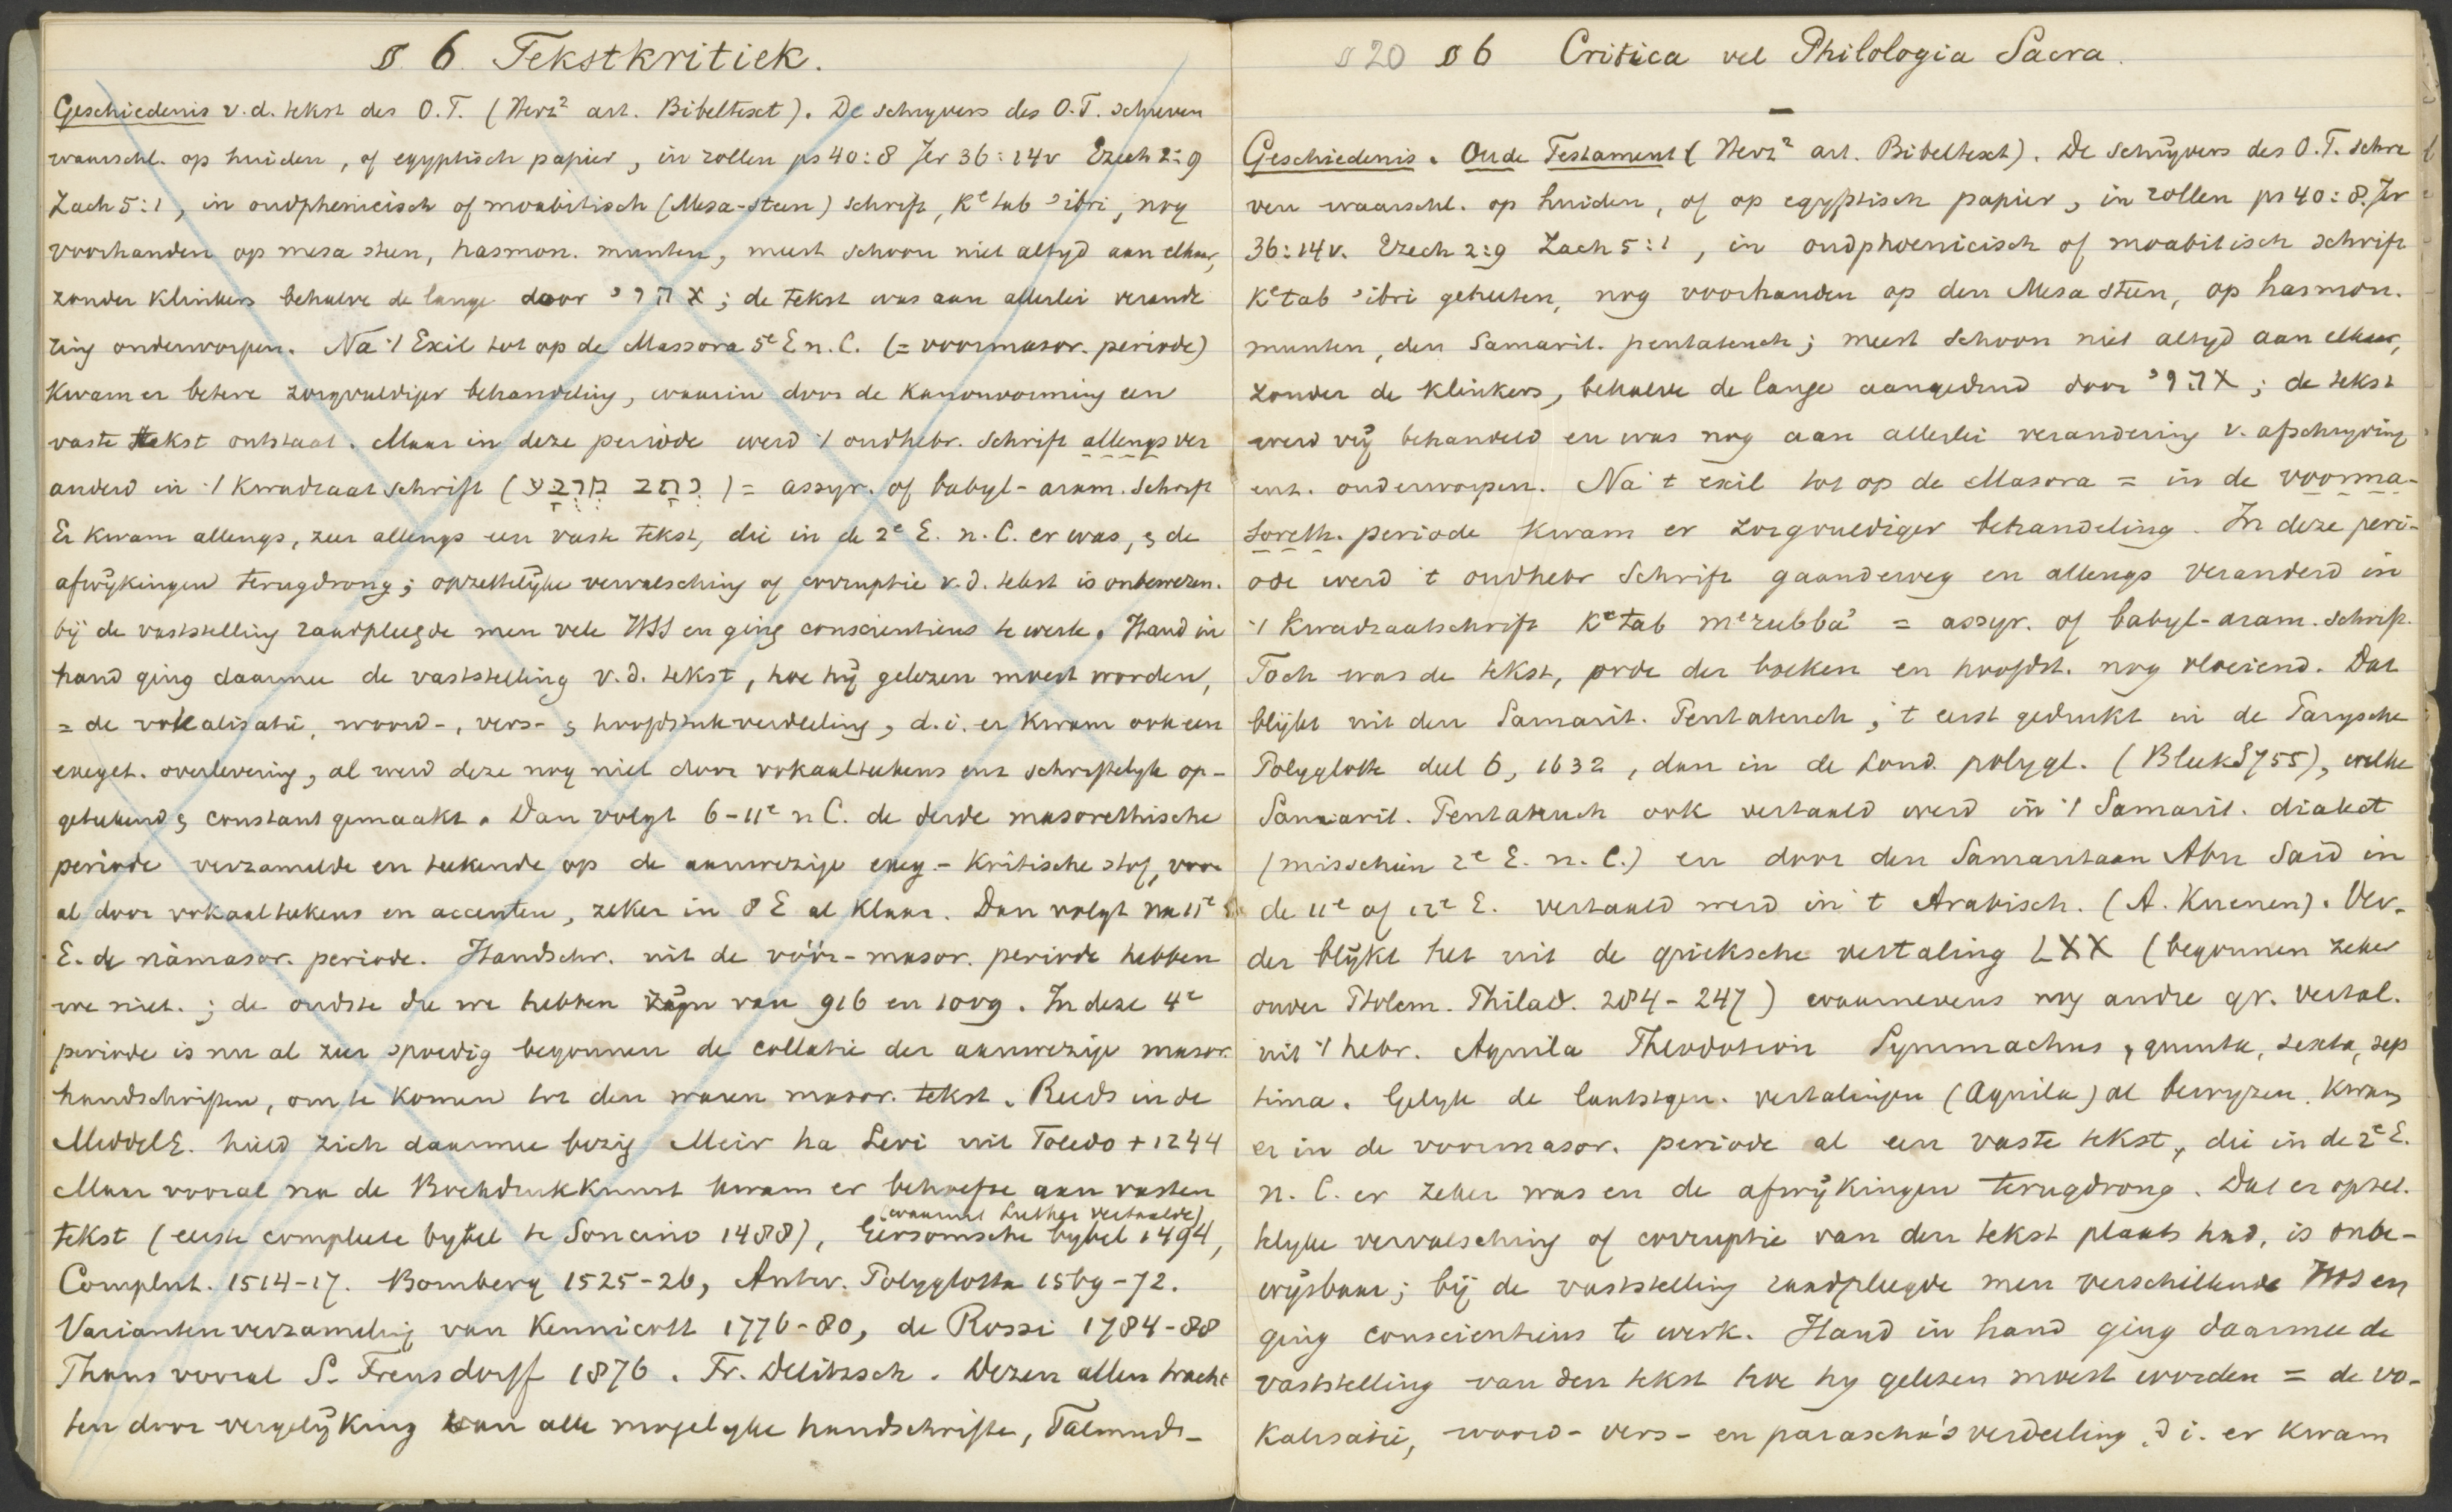 § 6 Tekstkritiek.
Geschiedenis v.d. tekst des O.T. (Herz² art. Bibeltext). De schrijvers des O.T. schreven
waarschl. op huiden, of egyptisch papier, in rollen ps 40:8 Jer 36:14v Ezech 2:9
Zach 5:1, in oudphenicisch of moabitisch (Mesa-steen) schrift, Kᵉtab ʾibri, nog
voorhanden op mesa steen, hasmon. munten, meest schoon niet altyd aan elkaar,
zonder klinkers behalve de lange door א ה ו י; de tekst was aan allerlei verande
ring onderworpen. Na 't Exil tot op de Massora 5ᵉ E n.C. (= voormasor. periode)
kwam er betere zorgvuldiger behandeling, waarin door de kanonvorming een
vaste tekst ontstaat. Maar in deze periode werd 't oudhebr. schrift allengs ver
anderd in 't kwadraat schrift (כתב מרבע) = assyr. of babyl-aram. schrift
Er kwam allengs, zeer allengs een vaste tekst, die in de 2ᵉ E. n.C. er was, & de
afwijkingen terugdrong; opzettelijke vervalsching of corruptie v.d. tekst is onbewezen.
bij de vaststelling raadpleegde men vele HSS en ging conscientieus te werk. Hand in
hand ging daarmee de vaststelling v.d. tekst, hoe hij gelezen moest worden,
= de vokalisatie, woord-, vers- & hoofdstukverdeeling, d.i. er kwam ook een
exeget. overlevering, al werd deze nog niet door vokaalteekens enz schriftelyk op-
geteekend & constant gemaakt. Dan volgt 6-11ᵉ n C. de derde masorethische
periode verzamelde en teekende op de aanwezige exeg.-kritische stof, voor
al door vokaalteekens en accenten, zeker in 8 E al klaar. Dan volgt na 11ᵉ
E. de námasor. periode. Handschr. uit de vóór-masor. periode hebben
we niet.; de oudste die we hebben zijn van 916 en 1009. In deze 4ᵉ
periode is nu al zeer spoedig begonnen de collatie der aanwezige masor.
handschriften, om te komen tot den waren masor. tekst. Reeds in de
MiddelE. hield zich daarmee bezig Meir ha Levi uit Toledo + 1244
Maar vooral na de Boekdrukkunst kwam er behoefte aan vasten
(waaruit Luther vertaalde)
tekst (eerste complete bybel te Soncino 1488), Gersomsche bybel 1494,
Complut. 1514-17. Bomberg 1525-26, Antw. Polyglotta 1569-72.
Variantenverzameling van Kennicott 1776-80, de Rossi 1784-88
Thans vooral S. Frensdorff 1876. Fr. Delitzsch. Dezen allen tracht
ten door vergelijking van alle mogelyke handschriften, Talmud-
§ 20 § 6 Critica vel Philologia Sacra.
Geschiedenis. Oude Testament (Herz² art. Bibeltext). De schrijvers des O.T. schre
ven waarschl. op huiden, of op egyptisch papier, in rollen ps 40:8. Jer
36:14v. Ezech 2:9 Zach 5:1, in oudphoenicisch of moabitisch schrift
Kᵉtab ʾibri geheeten, nog voorhanden op den Mesa steen, op hasmon.
munten, den Samarit. pentateuch; meest schoon niet altyd aan elkaar,
zonder de klinkers, behalve de lange aangeduid door א ה ו י; de tekst
werd vrij behandeld en was nog aan allerlei verandering v. afschryving
enz. onderworpen. Na 't exil tot op de Masora = in de voorma-
soreth. periode kwam er zorgvuldiger behandeling. In deze peri-
ode werd 't oudhebr schrift gaanderweg en allengs veranderd in
't kwadraatschrift Kᵉtab mᵉrubbaʾ = assyr. of babyl-aram. schrift.
Toch was de tekst, orde der boeken en hoofdst. nog vloeiend. Dat
blijkt uit den Samarit. Pentateuch, 't eerst gedrukt in de Parysche
Polyglotte deel 6, 1632, dan in de Lond. polygl. (Bleek S 755), welke
Samarit. Pentateuch ook vertaald werd in 't Samarit. dialect
(misschien 2ᵉ E. n. C.) en door den Samaritaan Abu Said in
de 11ᵉ of 12ᵉ E. vertaald werd in 't Arabisch. (A. Kuenen). Ver-
der blijkt het uit de grieksche vertaling LXX (begonnen zeker
onder Ptolem. Philad. 284-247) waarnevens nog andre gr. vertal.
uit 't hebr. Aquila Theodotion Symmachus, quinta, sexta, sep
tima. Gelyk de laatstgen. vertalingen (Aquila) al bewyzen, kwam
er in de voormasor. periode al een vaste tekst, die in de 2ᵉ E.
n. C. er zeker was en de afwijkingen terugdrong. Dat er opzet.
telyke vervalsching of corruptie van den tekst plaats had, is onbe-
wijsbaar; bij de vaststelling raadpleegde men verschillende HSS en
ging conscientieus te werk. Hand in hand ging daarmee de
vaststelling van den tekst hoe hy gelezen moest worden = de vo-
kalisatie, woord- vers- en parascha's verdeeling, d i. er kwam